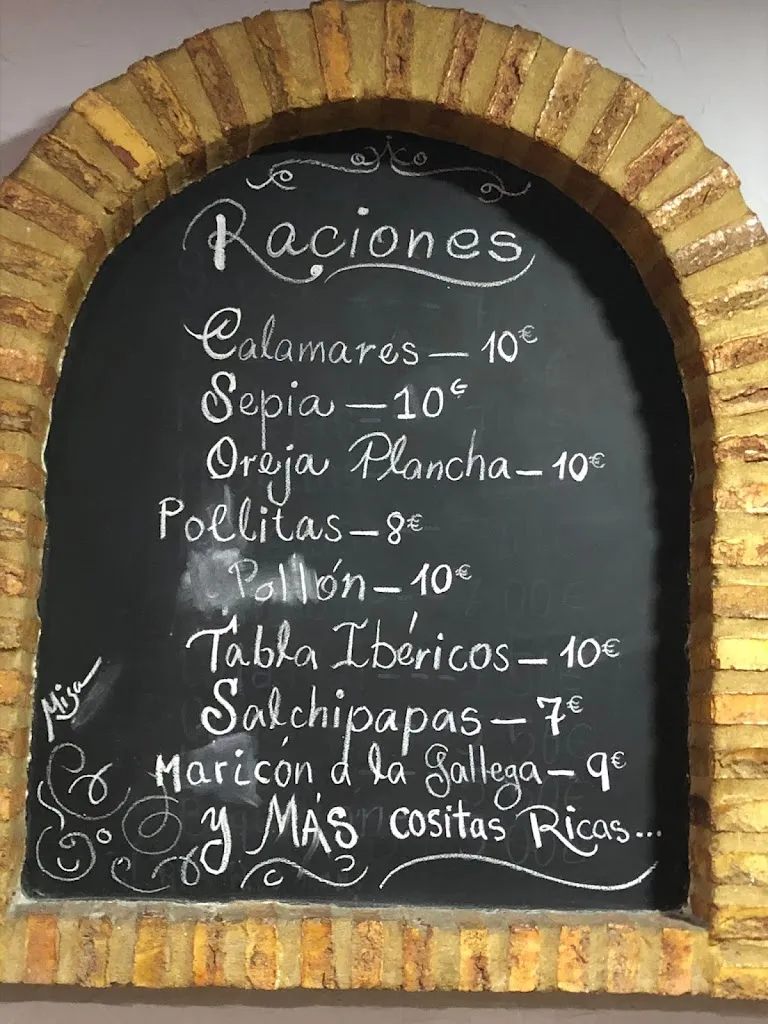 Raciones
Calamares — 10€
Sepia — 10€
Oreja Plancha — 10€
Pollitas — 8€
Pollón — 10€
Tabla Ibéricos — 10€
Salchipapas — 7€
Misa
Maricón a la gallega — 9€
y MÁS cositas Ricas...